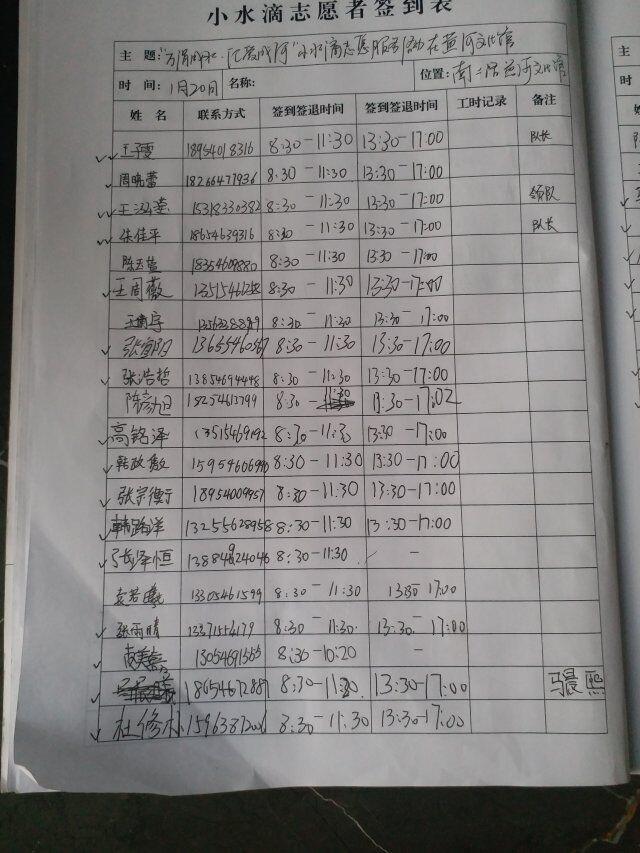 小水滴志愿者签到表
主 题: 小水滴志愿服务活动在黄河文化馆
时 间: 1月20日 名称: 位置: 南二路黄河文化馆
姓 名 联系方式 签到签退时间 签到签退时间 工时记录 备注
王子雯 18954018316 8:30-11:30 13:30-17:00 队长
周晓蕾 18266477936 8:30-11:30 13:30-17:00
王泓莹 15318330382 8:30-11:30 13:30-17:00 领队
张佳平 18654639316 8:30-11:30 13:30-17:00 队长
陈玉萱 18354609880 8:30-11:30 13:30-17:00
王周薇 8:30-11:30 13:30-17:00
8:30-11:30 13:30-17:00
张宜阳 8:30-11:30 13:30-17:00
张浩哲 13854694448 8:30-11:30 13:30-17:00
陈彦旭 15254612799 8:30-11:30 13:30-17:02
高铭泽 13515469192 8:30-11:30 13:30-17:00
韩政勲 8:30-11:30 13:30-17:00
张宗衡 18954009957 8:30-11:30 13:30-17:00
韩路洋 13255628958 8:30-11:30 13:30-17:00
张泽恒 8:30-11:30 -
袁若曦 13305461599 8:30-11:30 13:30-17:00
张雨晴 8:30-11:30 13:30-17:00
13054691565 8:30-10:20 -
18654672887 8:30-11:30 13:30-17:00 马晨熙
杜修朴 8:30-11:30 13:30-17:00